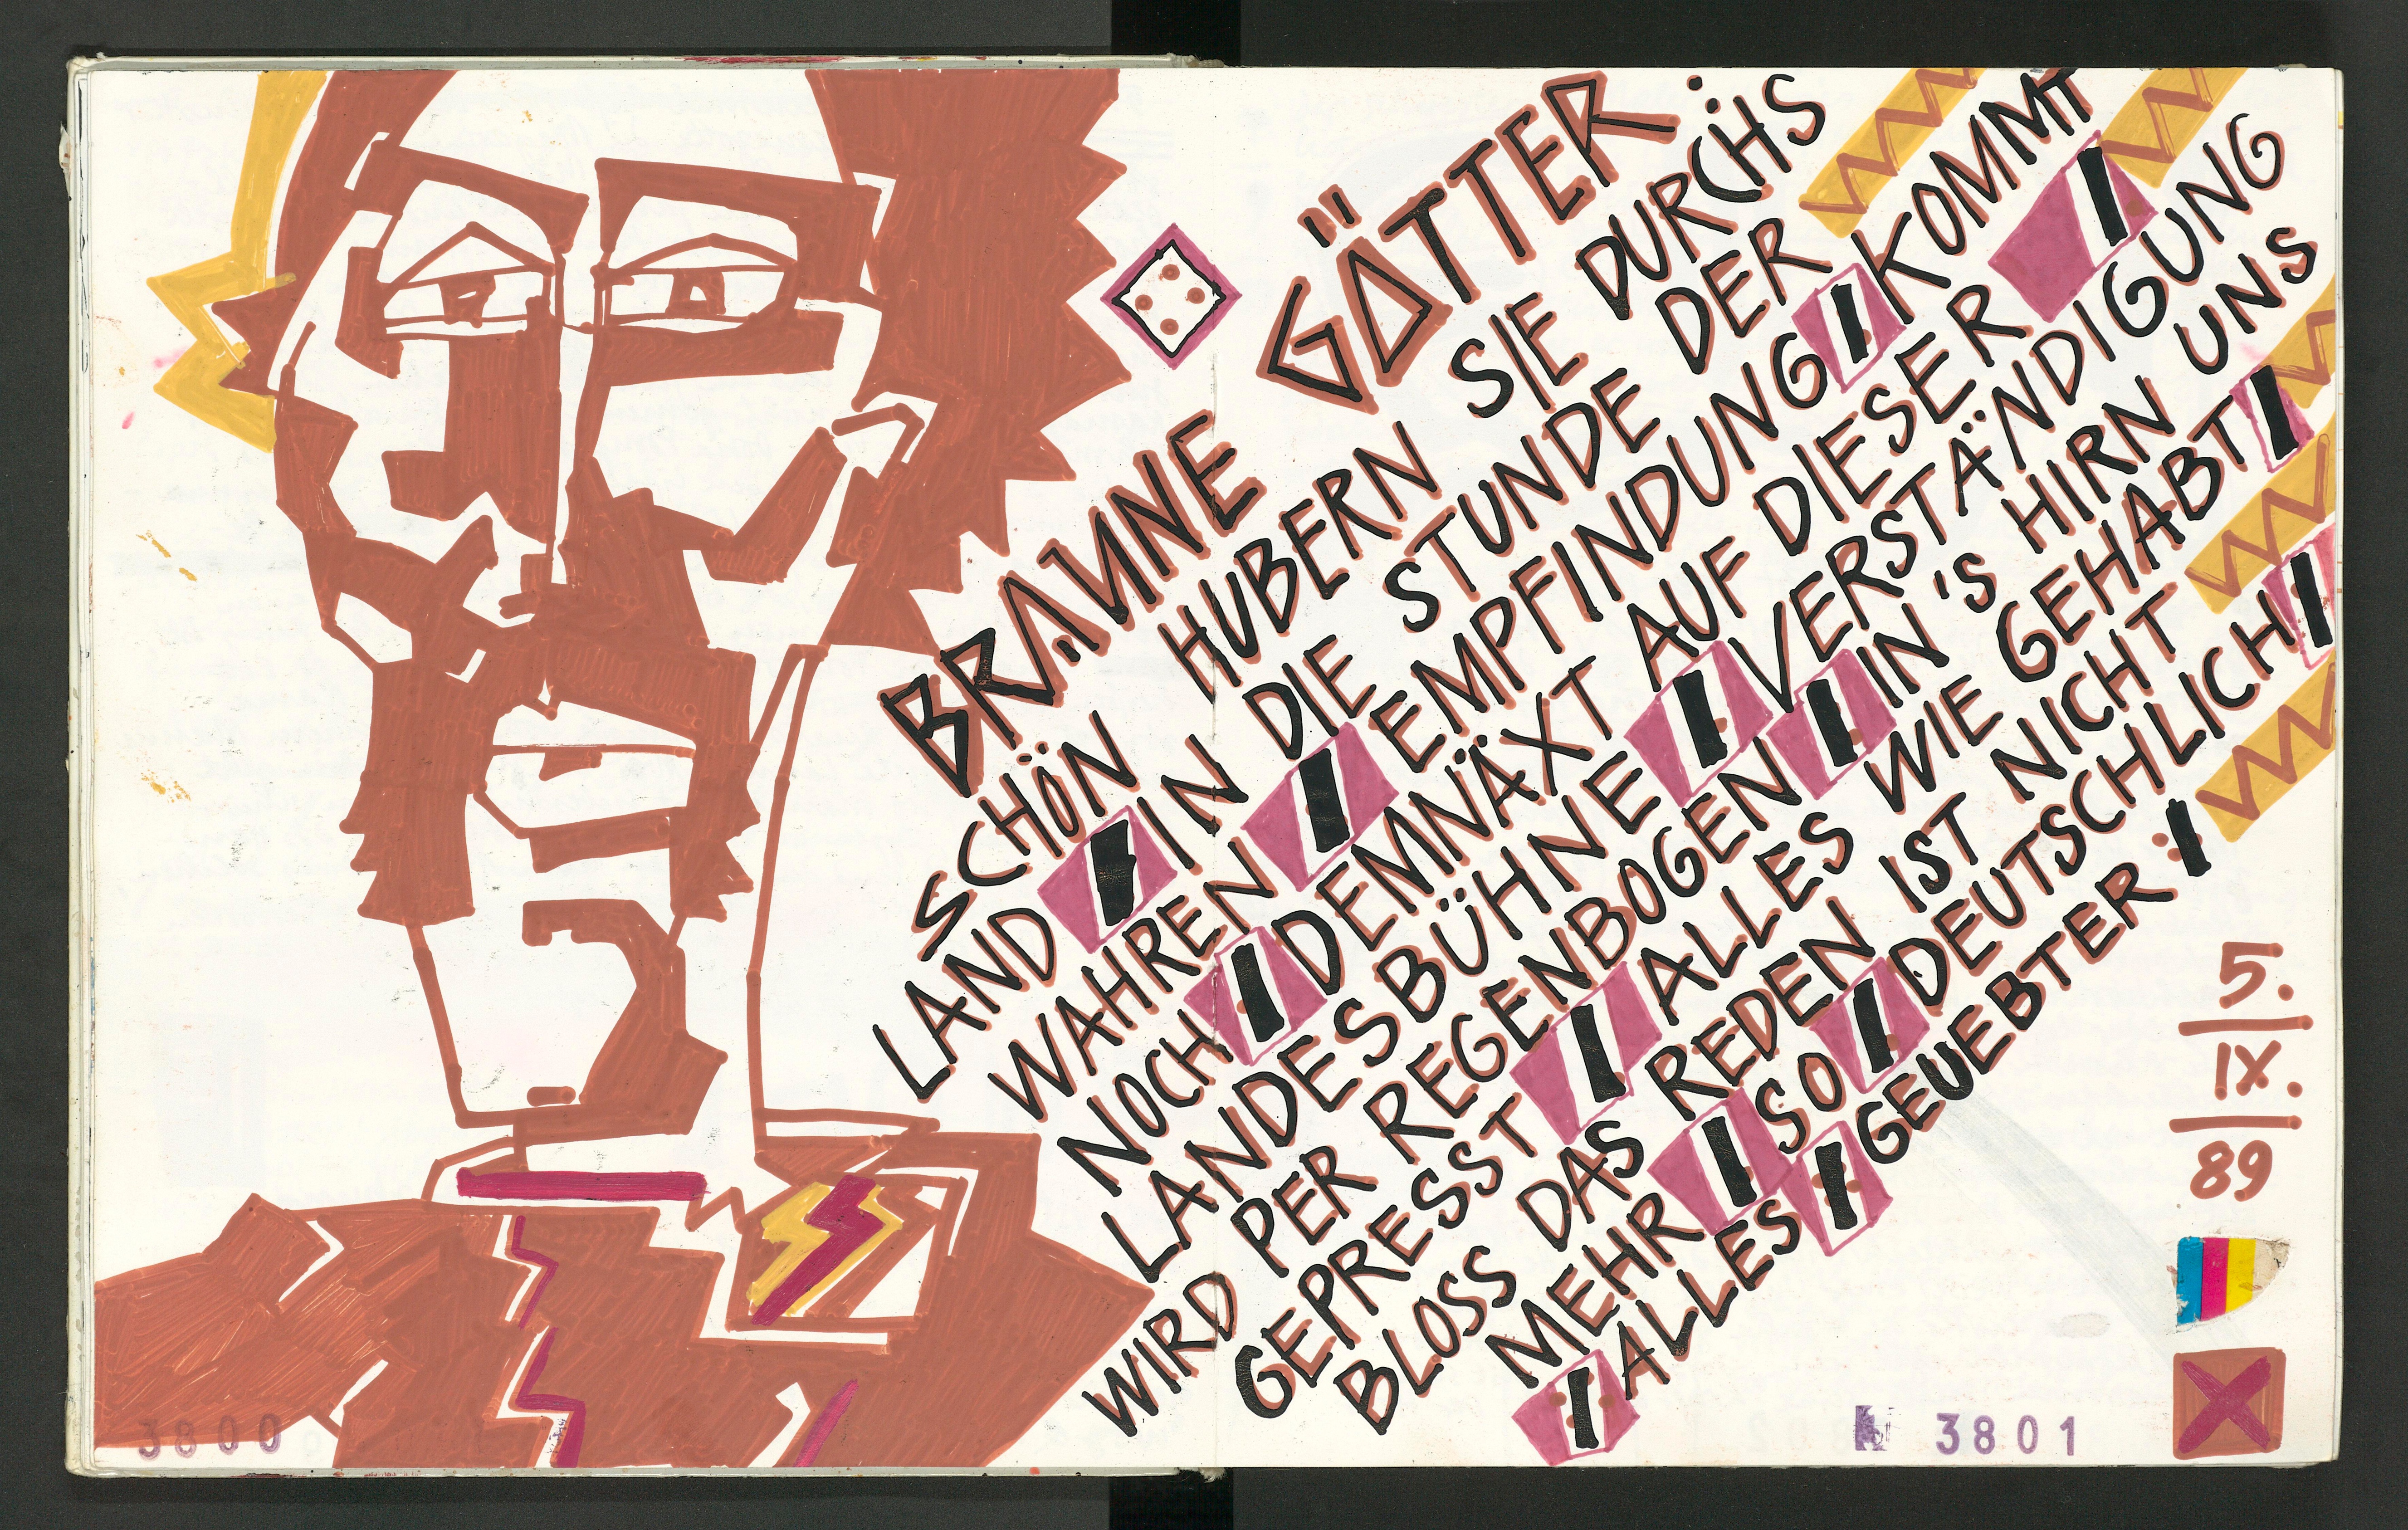 BRAUNE GÖTTER
SCHÖN HUBERN SIE DURCHS
LAND IN DIE STUNDE DER
WAHREN EMPFINDUNG KOMMT
NOCH DEMNÄXT AUF DIESER
LANDESBÜHNE VERSTÄNDIGUNG
WIRD PER REGENBOGEN IN'S HIRN UNS
GEPRESST ALLES WIE GEHABT
BLOSS DAS REDEN IST NICHT
MEHR SO DEUTSCHLICH
ALLES GEUEBTER
5.
IX.
89
3800
3801